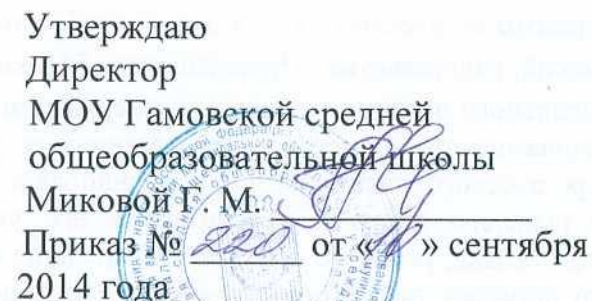 Утверждаю
Директор
МОУ Гамовской средней
общеобразовательной школы
Миковой Г. М. ____________
Приказ № 220 от « » сентября
2014 года